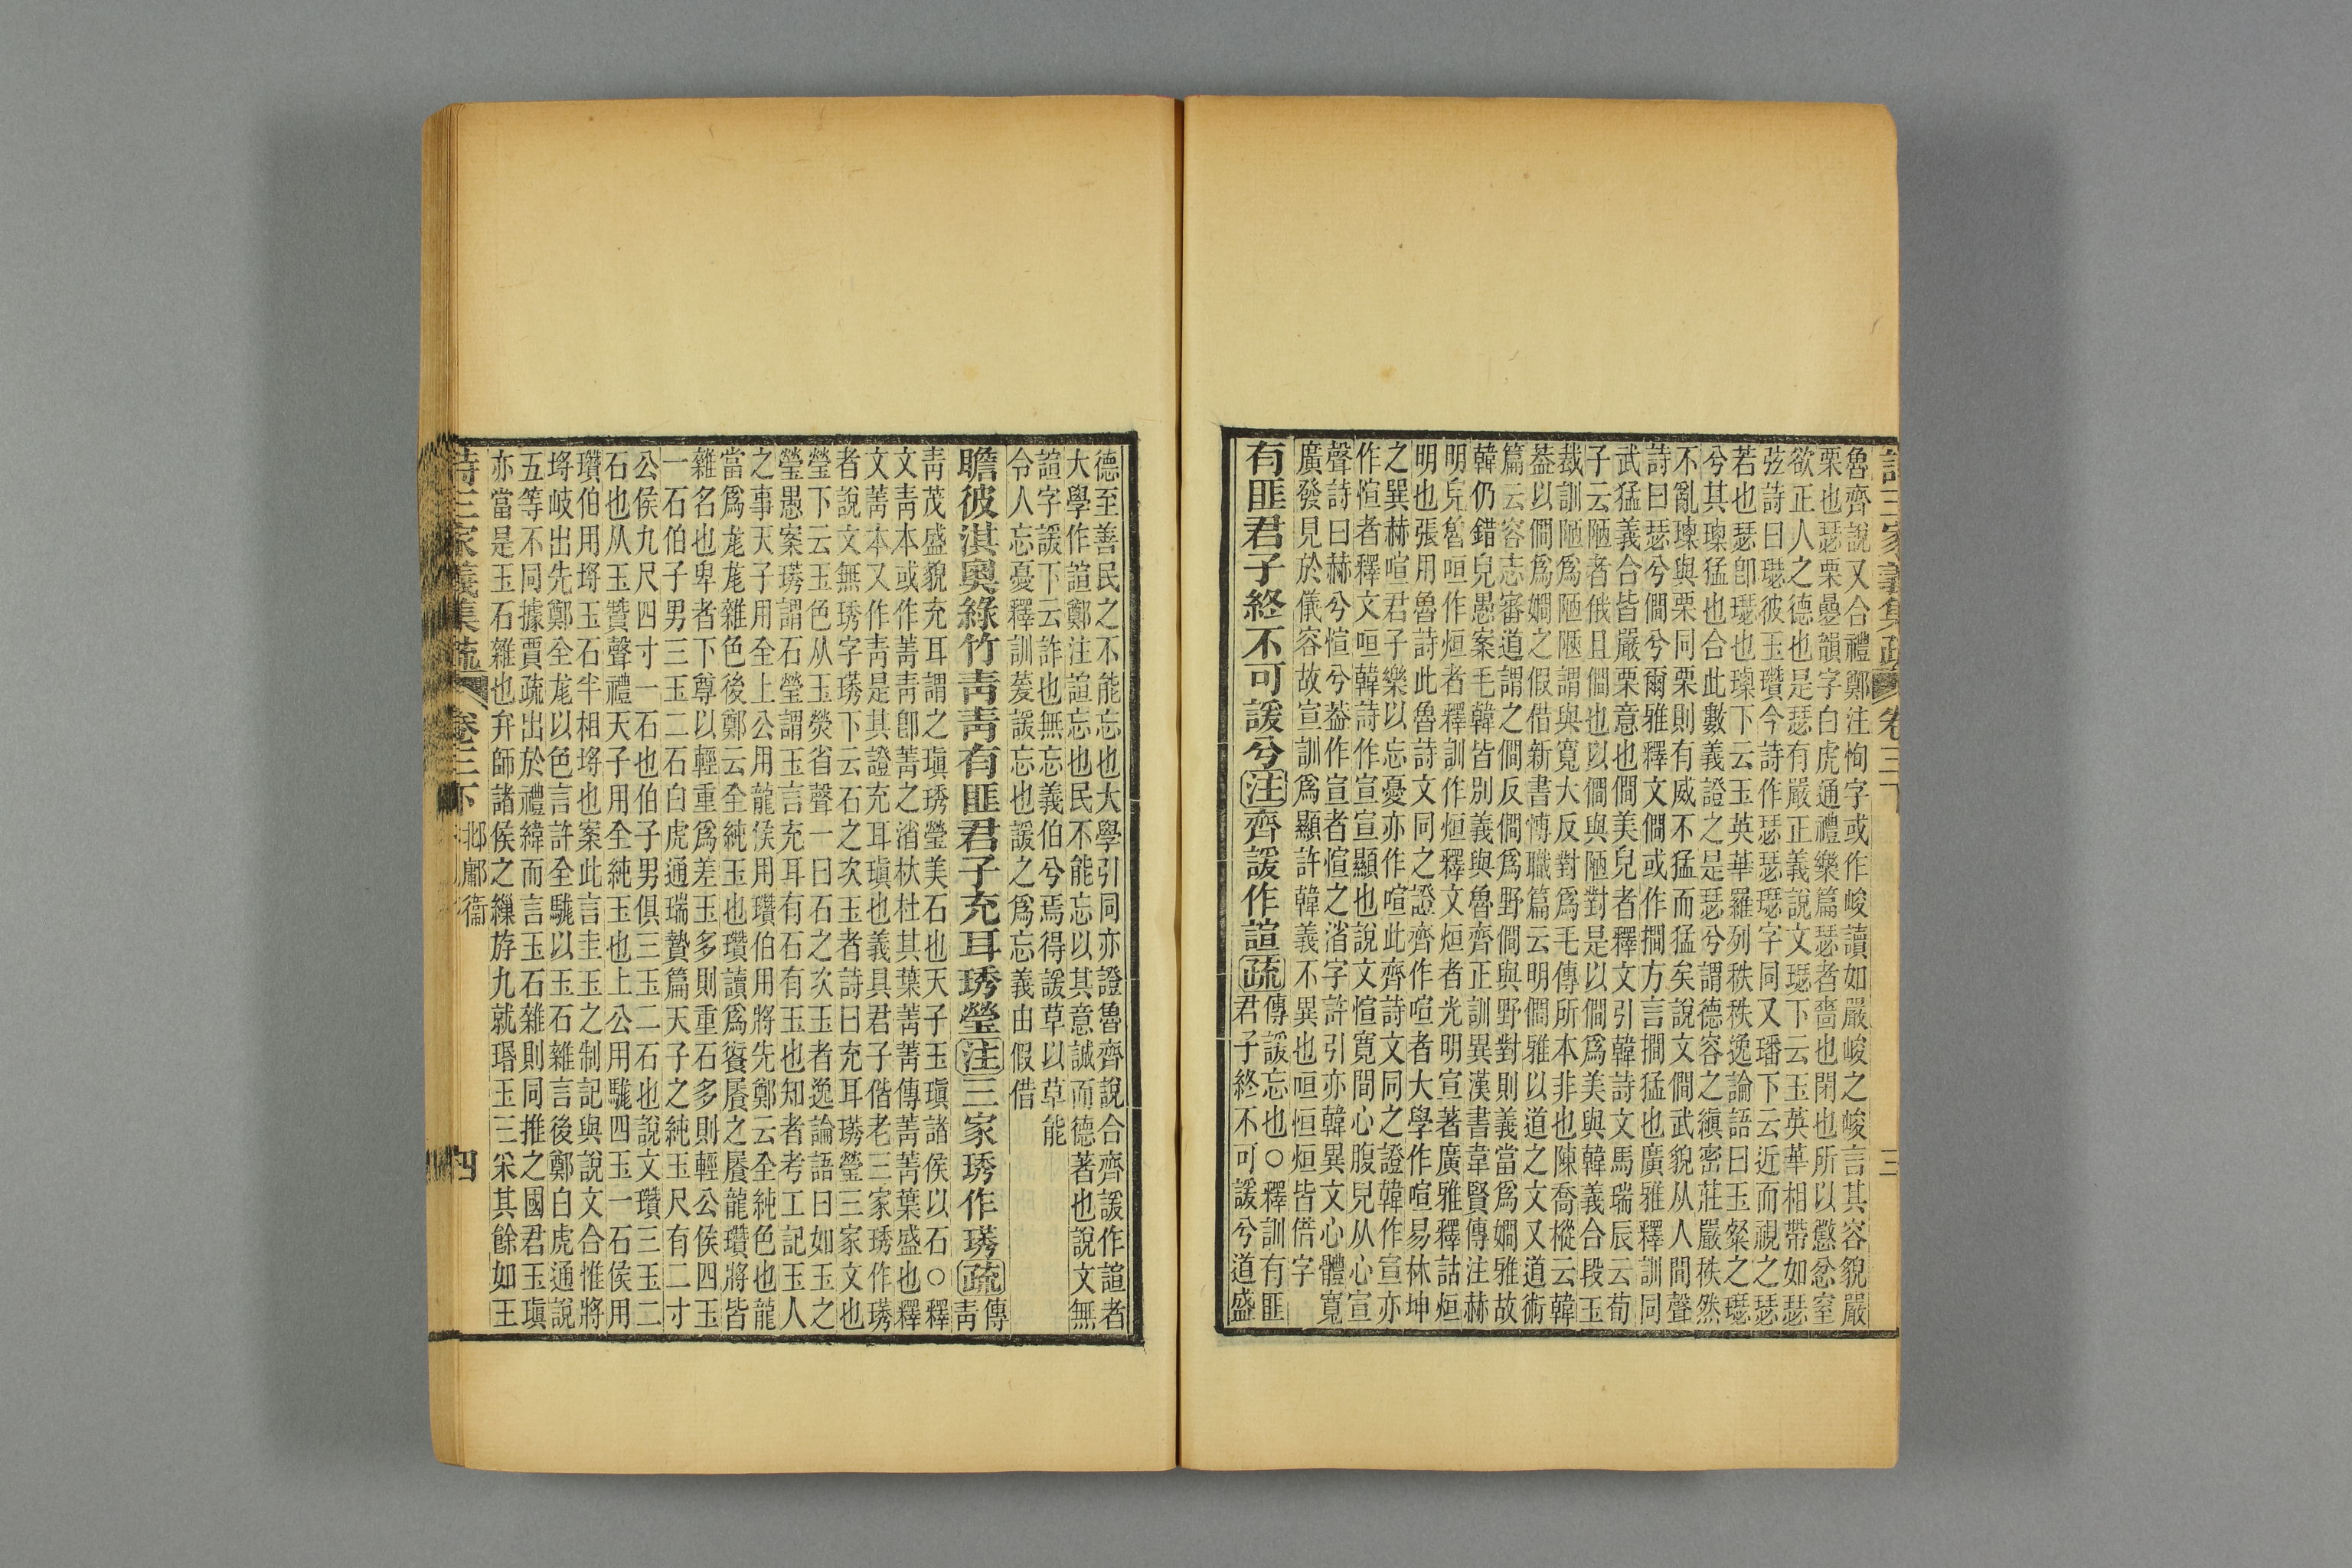 詩三家義集疏 卷三下 三
魯齊說又合禮鄭注恂字或作峻讀如嚴峻之峻言其容貌嚴
栗也瑟栗㬪韻字白虎通禮樂篇瑟者嗇也閉也所以懲忿窒
欲正人之德也是瑟有嚴正義說文璱下云玉英華相帶如瑟
弦詩曰璱彼玉瓚今詩作瑟瑟璱字同又璠下云近而視之瑟
若也瑟卽璱也瑮下云玉英華羅列秩秩逸論語曰玉粲之璱
兮其瑮猛也合此數義證之是瑟兮謂德容之縝密莊嚴秩然
不亂瑮與栗同栗則有威不猛而猛矣說文僩武貌从人閒聲
詩曰瑟兮僩兮爾雅釋文僩或作撊方言撊猛也廣雅釋訓同
武猛義合皆嚴栗意也僩美皃者釋文引韓詩文馬瑞辰云荀
子云陋者俄且僩也以僩與陋對是以僩爲美與韓義合段玉
裁訓陋爲陋陿謂與寬大反對爲毛傳所本非也陳喬樅云韓
葢以僩爲嫺之假借新書傅職篇云明僩雅以道之文又道術
篇云容志審道謂之僩反僩爲野僩與野對則義當爲嫺雅故
韓仍錯皃愚案毛韓皆別義與魯齊正訓異漢書韋賢傳注赫
明皃魯咺作烜者釋訓作烜釋文烜者光明宣著廣雅釋詁烜
明也張用魯詩此魯詩文同之證齊作喧者大學作喧易林坤
之巽赫喧君子樂以忘憂亦作喧此齊詩文同之證韓作宣亦
作愃者釋文咺韓詩作宣宣顯也說文愃寬閒心腹皃从心宣
聲詩曰赫兮愃兮葢作宣者愃之渻字許引亦韓異文心體寬
廣發見於儀容故宣訓爲顯許韓義不異也咺愃烜皆借字
有匪君子終不可諼兮注齊諼作諠疏傳諼忘也○釋訓有匪
君子終不可諼兮道盛
德至善民之不能忘也大學引同亦證魯齊說合齊諼作諠者
大學作諠鄭注諠忘也民不能忘以其意誠而德著也說文無
諠字諼下云詐也無忘義伯兮焉得諼草以草能
令人忘憂釋訓萲諼忘也諼之爲忘義由假借
瞻彼淇奧綠竹靑靑有匪君子充耳琇瑩注三家琇作璓疏傳靑
靑茂盛貌充耳謂之瑱琇瑩美石也天子玉瑱諸侯以石○釋
文靑本或作菁靑卽菁之渻杕杜其葉菁菁傳菁菁葉盛也釋
文菁本又作靑是其證充耳瑱也義具君子偕老三家琇作璓
者說文無琇字璓下云石之次玉者詩曰充耳璓瑩三家文也
瑩下云玉色从玉熒省聲一曰石之次玉者逸論語曰如玉之
瑩愚案璓謂石瑩謂玉言充耳有石有玉也知者考工記玉人
之事天子用全上公用龍侯用瓚伯用將先鄭云全純色也龍
當爲尨尨雜色後鄭云全純玉也瓚讀爲餐屬之屬龍瓚將皆
雜名也卑者下尊以輕重爲差玉多則重石多則輕公侯四玉
一石伯子男三玉二石白虎通瑞贄篇天子之純玉尺有二寸
公侯九尺四寸一石也伯子男俱三玉二石也說文瓚三玉二
石也从玉贊聲禮天子用全純玉也上公用駹四玉一石侯用
瓚伯用埒玉石半相埒也案此言圭玉之制記與說文合惟將
埒岐出先鄭全尨以色言許全駹以玉石雜言後鄭白虎通說
五等不同據賈疏出於禮緯而言玉石雜則同推之國君玉瑱
亦當是玉石雜也弁師諸侯之繅斿九就瑉玉三采其餘如王
詩三家義集疏 卷三下 邶鄘衞 四